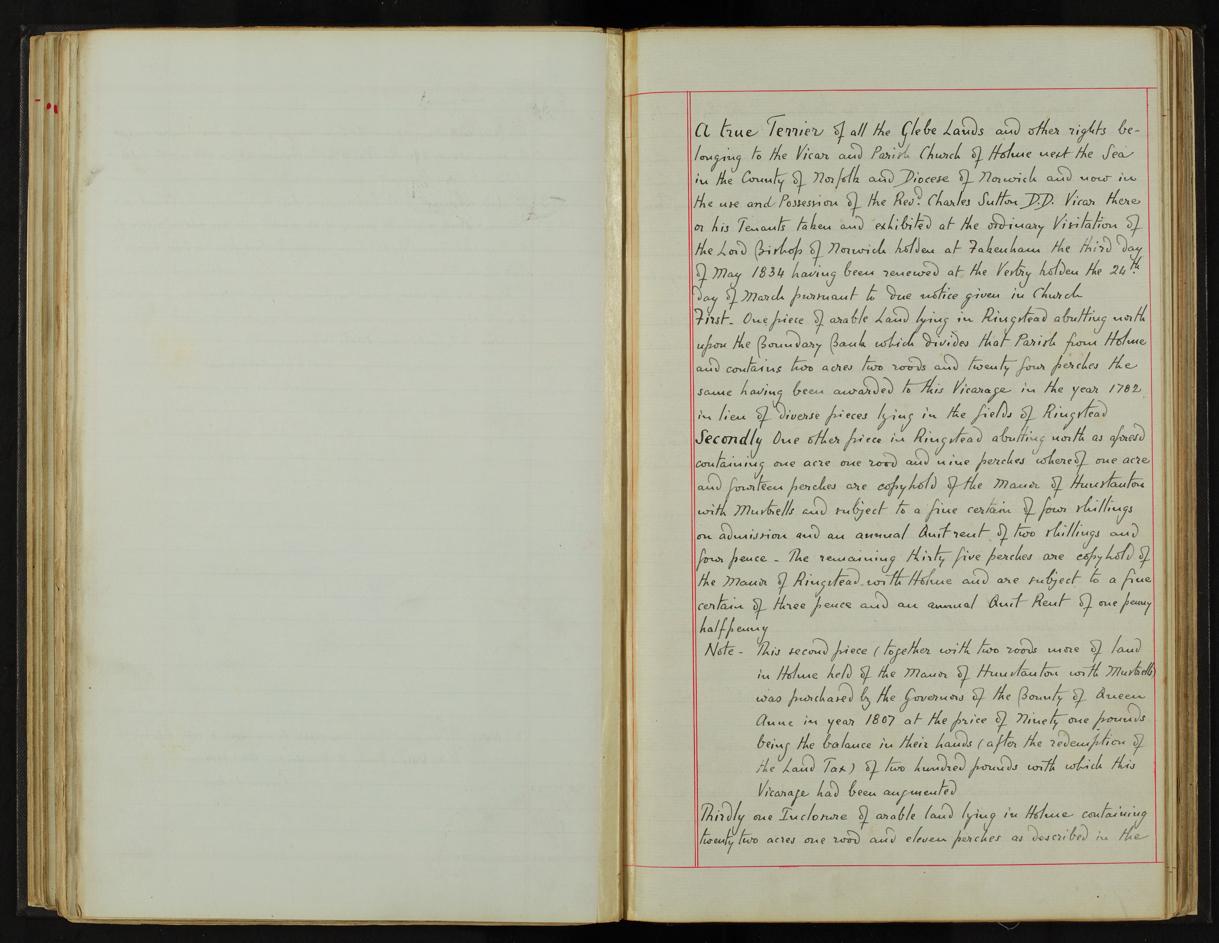 A true Terrier of all the Glebe Lands and other rights be-
longing to the Vicar and Parish Church of Holme next the Sea
in the County of Norfolk and Diocese of Norwich and now in
the use and Possession of the Revd. Charles Sutton D.D. Vicar there
or his Tenants taken and exhibited at the ordinary Visitation of
the Lord Bishop of Norwich holden at Fakenham the third day
of May 1834 having been renewed at the Vestry holden the 24th
day of March pursuant to due notice given in Church
First - One piece of arable Land lying in Ringstead abutting north
upon the Boundary Bank which divides that Parish from Holme
and contains two acres two roods and twenty four perches the
same having been awarded to this Vicarage in the year 1782
in lieu of diverse pieces lying in the fields of Ringstead
Secondly One other piece in Ringstead abutting north as aforesd
containing one acre one rood and nine perches whereof one acre
and fourteen perches are copyhold of the Manor of Hunstanton
with Mustrells and subject to a fine certain of four shillings
on admission and an annual Quit rent of two shillings and
four pence - The remaining thirty five perches are copyhold of
the Manor of Ringstead with Holme and are subject to a fine
certain of three pence and an annual Quit Rent of one penny
halfpenny
Note - This second piece (together with two roods more of land
in Holme held of the Manor of Hunstanton with Mustrells)
was purchased by the Governors of the Bounty of Queen
Anne in year 1807 at the price of Ninety one pounds
being the balance in their hands (after the redemption of
the Land Tax) of two hundred pounds with which this
Vicarage had been augmented
Thirdly one Inclosure of arable land lying in Holme containing
twenty two acres one rood and eleven perches as described in the